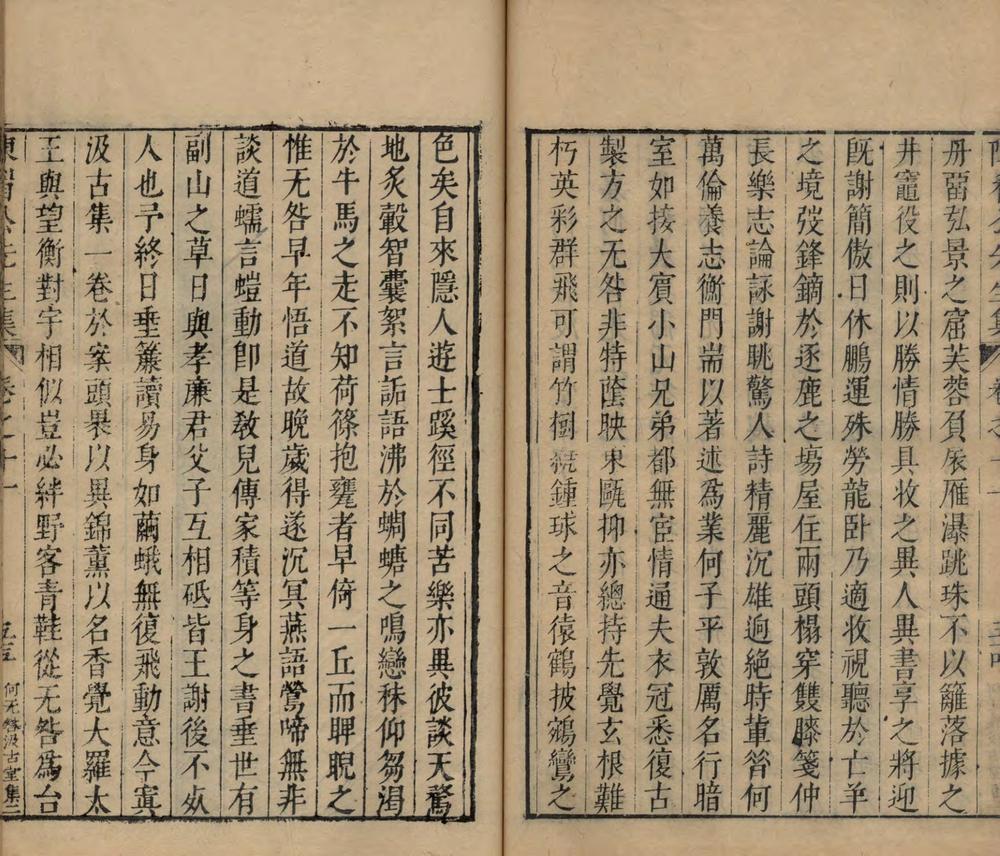 丹畱弘景之窟芙蓉負扆雁瀑跳珠不以籬落據之
井竈役之則以勝情勝具收之異人異書享之將迎
旣謝簡傲日休鵬運殊勞龍卧乃適收視聽於亡羊
之境弢鋒鏑於逐鹿之塲屋任兩頭榻穿雙膝箋仲
長樂志論詠謝眺驚人詩精麗沉雄逈絕時輩答何
萬倫養志衡門耑以著述爲業何子平敦厲名行暗
室如接大賔小山兄弟都無宦情逼夫衣冠悉復古
製方之无咎非特蔭映東甌抑亦總持先覺玄根難
朽英彩群飛可謂竹樹鍾球之音猿鶴披鵷鸞之
色矣自來隱人遊士蹊徑不同苦樂亦異彼談天驚
地炙轂智囊絮言詬語沸於蜩螗之鳴戀秣仰芻渴
於牛馬之走不知荷篠抱甕者早倚一丘而睥睨之
惟无咎早年悟道故晚歲得遂沉冥燕語鶯啼無非
談道蠕言螘動卽是敎兒傳家積等身之書垂世有
副山之草日與孝廉君父子互相砥皆王謝後不㚢
人也予終日垂簾讀易身如繭蛾無復飛動意今寘
汲古集一卷於案頭褁以異錦薰以名香覺大羅太
王與望衡對宇相似豈必絆野客青鞋從无咎爲台
公先生集 卷之十一 五五 何无咎汲古堂集二